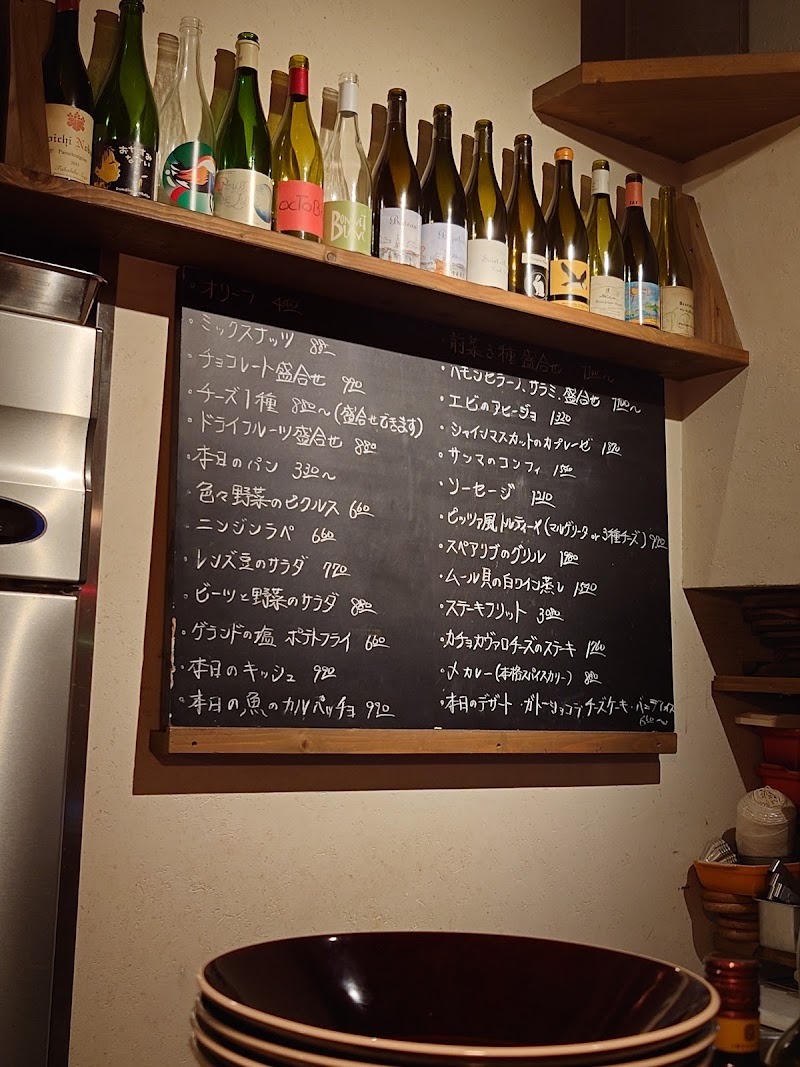 OCTOB
BONNET
BLANC
・オリーブ 440
・ミックスナッツ 880
・チョコレート盛合せ 920
・チーズ1種 880〜(盛合せできます)
・ドライフルーツ盛合せ 880
・本日のパン 330〜
・色々野菜のピクルス 660
・ニンジンラペ 660
・レンズ豆のサラダ 770
・ビーツと野菜のサラダ 880
・ゲランドの塩 ポテトフライ 660
・本日のキッシュ 990
・本日の魚のカルパッチョ 990
前菜3種盛合せ
・ハモンセラーノ、サラミ、盛合せ 1100〜
・エビのアヒージョ 1320
・シャインマスカットのカプレーゼ
・サンマのコンフィ
・ソーセージ 1210
・ピッツァ風トルティーヤ(マルゲリータ or 3種チーズ) 990
・スペアリブのグリル 1980
・ムール貝の白ワイン蒸し
・ステーキフリット 3080
・カチョカヴァロチーズのステーキ
・〆カレー(本格スパイスカリー) 880
・本日のデザート・ガトーショコラ・チーズケーキ・バニラアイス
660〜